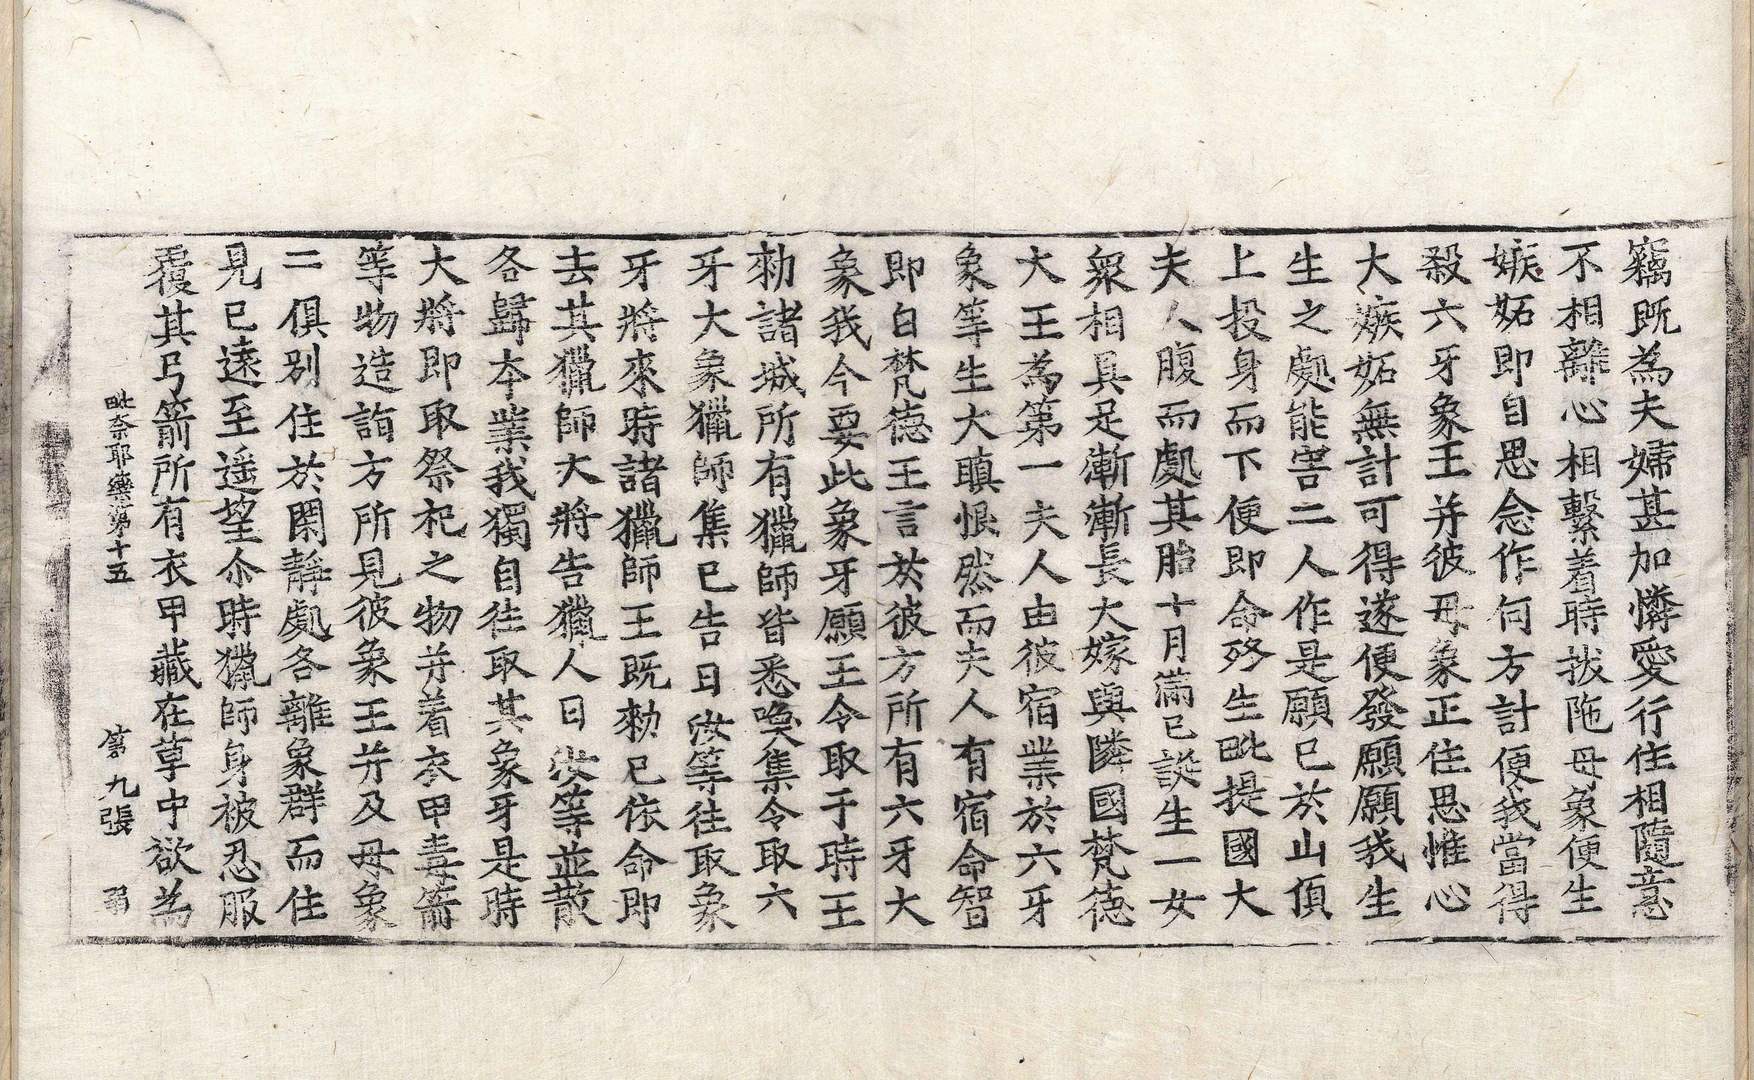 竊既為夫婦甚加憐愛行住相隨意
不相離心相繫着時拔陁母象便生
嫉妬即自思念作何方計便我當得
殺六牙象王并彼母象正住思惟心
大嫉妬無計可得遂便發願願我生
生之處能害二人作是願已於山頂
上投身而下便即命終生毗提國大
夫人腹而處其胎十月滿已誕生一女
衆相具足漸漸長大嫁與隣國梵德
大王為第一夫人由彼宿業於六牙
象等生大瞋恨然而夫人有宿命智
即白梵德王言於彼方所有六牙大
象我今要此象牙願王令取于時王
勑諸城所有獵師皆悉喚集令取六
牙大象獵師集已告曰汝等往取象
牙將來時諸獵師王既勑已依命即
去其獵師大將告獵人曰汝等並散
各歸本業我獨自往取其象牙是時
大將即取祭祀之物并着衣甲毒箭
等物造詣方所見彼象王并及母象
二俱別住於閑靜處各離象群而住
見已遠至遥望尒時獵師身被忍服
覆其弓箭所有衣甲藏在草中欲為
毗奈耶藥事第十五　第九張　弱